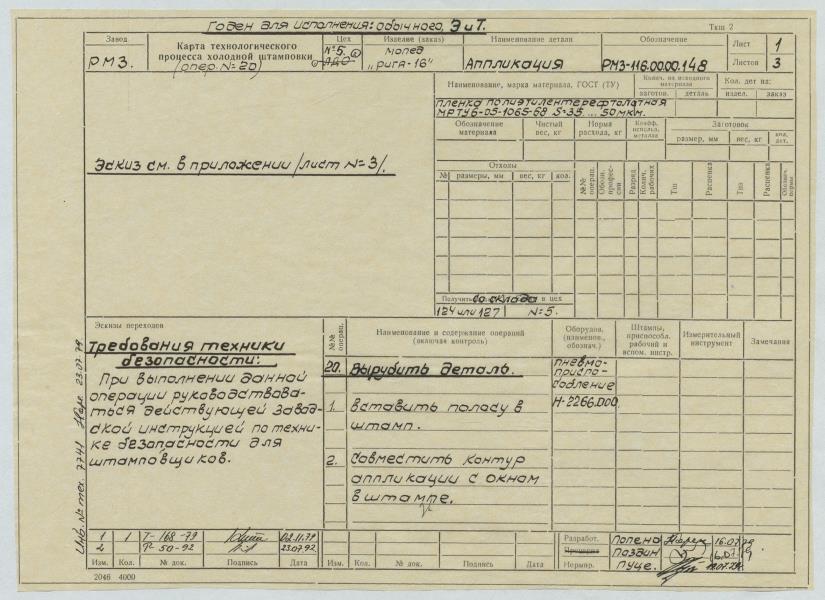 Годен для исполнения: обычного, Э и Т.
Ткш 2
Завод
РМЗ.
Карта технологического
процесса холодной штамповки
(опер. №20)
Цех
№5.
Изделие (заказ)
мопед
„Рига-16"
Наименование детали
Аппликация
Обозначение
РМЗ-116.00.00.148
Лист 1
Листов 3
Эскиз см. в приложении /лист №3/.
Наименование, марка материала, ГОСТ (ТУ)
Колич. из исходного материала
заготов. деталь
Кол. дет на:
издел. заказ
пленка полиэтилентерефталатная
МРТУ6-05-1065-68 S=35...50мкм.
Обозначение материала
Чистый вес, кг
Норма расхода, кг
Коэфф. использ. металла
Заготовок
размер, мм вес, кг кол. дет.
Отходы
№ размеры, мм вес, кг кол.
№№ операц.
Обозн. профессии
Разряд
Колич. рабочих
Тш
Расценка
Тпз
Расценка
Получить со склада в цех
124 или 127 №5.
Эскизы переходов
Требования техники
безопасности:
При выполнении данной
операции руководствова-
ться действующей завод-
ской инструкцией по техни-
ке безопасности для
штамповщиков.
№№ операц.
Наименование и содержание операций
(включая контроль)
Оборудов. (наименов., обознач.)
Штампы, приспособл. рабочий и вспом. инстр.
Измерительный инструмент
Замечания
20. Вырубить деталь.
пневмо-
приспо-
собление
Н-2266.000.
1. Вставить полосу в
штамп.
2. Совместить контур
аппликации с окном
в штампе.
Инв. № тех. 7741 23.07.79.
1 1 Т-168-79 02.11.79
2 Р 50-92 23.07.92
Изм. Кол. № док. Подпись Дата
Изм. Кол. № док. Подпись Дата
Разработ. Попена 16.07.79
Поздин
Нормир. Пуце.
2046 4000